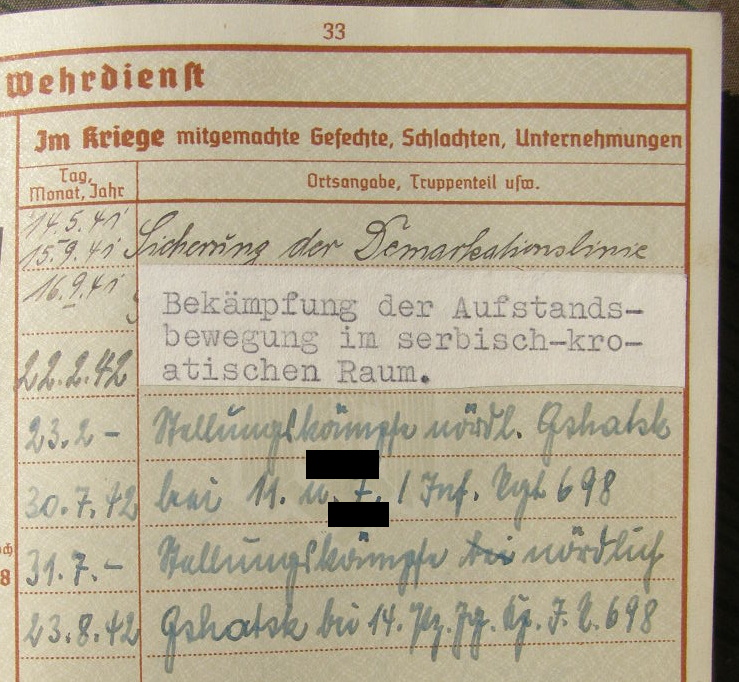 33
Wehrdienst
Im Kriege mitgemachte Gefechte, Schlachten, Unternehmungen
Tag,
Monat, Jahr
Ortsangabe, Truppenteil usw.
14.5.41
15.9.41 Sicherung der Demarkationslinie
16.9.41
Bekämpfung der Aufstands-
bewegung im serbisch-kro-
22.2.42 atischen Raum.
23.2- Stellungskämpfe nördl. Gshatsk
30.7.42 bei 11. u. 7. / Inf. Rgt 698
31.7.- Stellungskämpfe bei nördlich
23.8.42 Gshatsk bei 14. Pz. Jg. Kp. J. R. 698
8